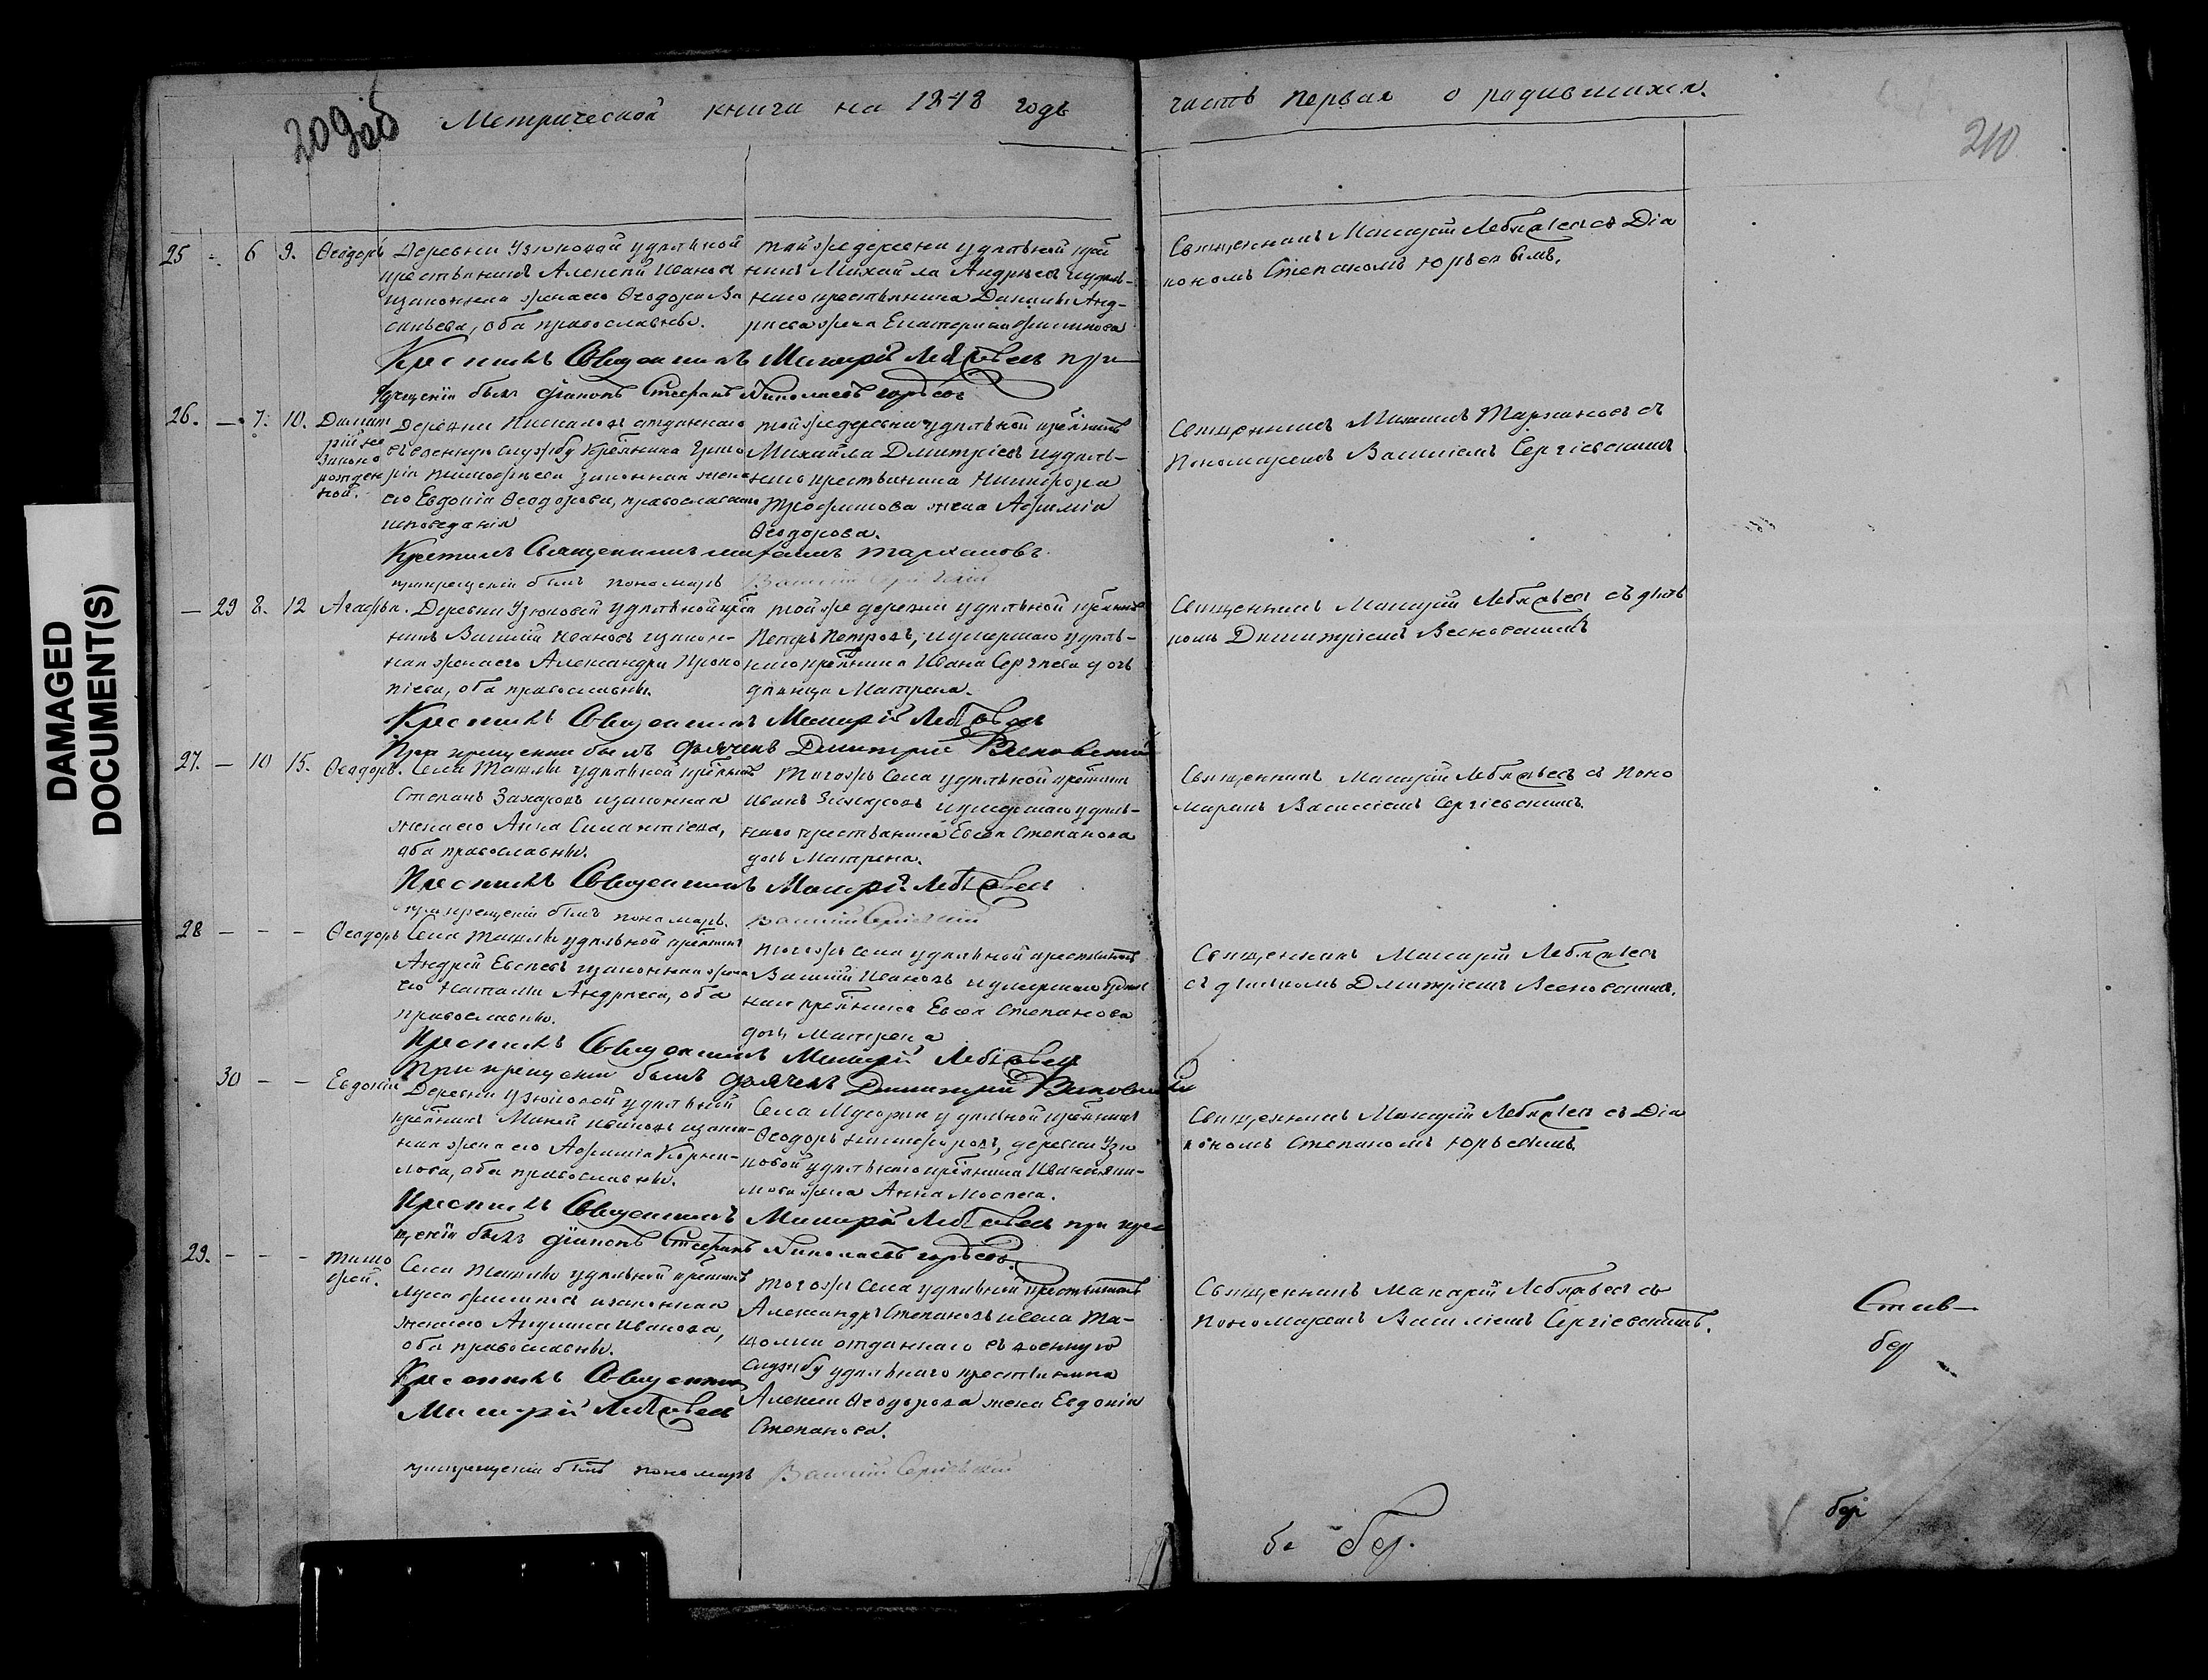 209об
Метрической книги на 1848 годъ часть первая о родившихся.
210
DAMAGED
DOCUMENT(S)
25 - 6 9. Ѳеодоръ
Деревни Узюковой удѣльной
крестьянинъ Алексѣй Ивановъ
и законная жена его Ѳеодора Ва
сильева, оба православны.
той же деревни удѣльной крѣ
нинъ Михайла Андреевъ и удѣль-
наго крестьянина Данилы Анд-
реева жена Екатерина Филипова
Священникъ Макарій Лебѧтевъ съ Діа
кономъ Степаномъ Юрьевымъ.
Крестилъ Священникъ Макарій при
крещеніи былъ діаконъ Стефанъ Николаевъ Юрьевъ
26. - 7. 10. Димит
рій не
законо
рожден
ной.
Деревни отданнаго
въ военную службу крѣстьянина Григо
рія Тимофеева законная жена
его Евдокія Ѳеодорова, православнаго
исповеданія
той же деревни удѣльной
Михайла Дмитріевъ и удѣль-
наго крестьянина Никифора
Трофимова жена Афимія
Ѳеодорова.
Священникъ Михаилъ Тархановъ съ
Пономаремъ Василіемъ Сергіевскимъ
Крестилъ Священникъ Михаилъ Тархановъ
при крещеніи былъ пономарь Василій Сергіевскій
- 29 8. 12 Агафья.
Деревни Узюковой удѣльной
нинъ Василій Ивановъ и закон-
ная жена его Александра Проко
піева, оба православны.
той же деревни удѣльной
Петръ Петровъ, и умершаго удѣль-
наго Ивана Сергеева дочь
дѣвица Матрена.
Священникъ Макарій Лебѧтевъ съ дьяч
комъ Димитріемъ Весновскимъ
Крестилъ Священникъ Макарій
При крещеніи былъ дьячекъ Димитрій Весновскій
27. - 10 15. Ѳеодоръ.
Села Ташлы удѣльной
Степанъ Захаровъ и законная
жена его Анна Силантіева,
оба православны.
Того жъ села удѣльной
Иванъ Захаровъ и умершаго удѣль-
наго крестьянина Евсея Степанова
дочь Матрена.
Священникъ Макарій Лебѧтевъ съ Поно
маремъ Василіемъ Сергіевскимъ.
Крестилъ Священникъ Макарій
при крещеніи былъ пономарь. Василій Сергіевскій
28 - - - Ѳеодоръ
Села Ташлы удѣльной
Андрей Евсеевъ и законная жена
его Наталья Андреева, оба
православны.
того жъ села удѣльной крестьянинъ
Василій Ивановъ и умершаго
наго Евсея Степанова
дочь Матрена
Священникъ Макарій Лебѧтевъ
съ дьячкомъ Дмитріемъ Весновскимъ.
Крестилъ Священникъ Макарій
При крещеніи былъ дьячекъ Димитрій Весновскій
30 - - Евдокія
Деревни Узюковой удѣльной
Ивановъ и закон-
ная жена его Афимія Корни-
лова, оба православны.
Села Мусорки удѣльной
Ѳеодоръ Никифоровъ, деревни Узю
ковой удѣльнаго Ивана
жена Анна Мосеева.
Священникъ Макарій Лебѧтевъ съ Діа
кономъ Степаномъ Юрьевымъ
Крестилъ Священникъ Макарій при кре
щеніи былъ діаконъ Стефанъ Николаевъ Юрьевъ.
29. - - - Тимо
фей.
Села Ташлы удѣльной
Лука Филиповъ и законная
жена его Акулина Иванова,
оба православны.
Того жъ села удѣльной крестьянинъ
Александръ Степановъ и села Та-
шолки отданнаго въ военную
службу удѣльнаго крестьянина
Алексея Ѳеодорова жена Евдокія
Степанова.
Священникъ Макарій Лебѧтевъ съ
пономаремъ Василіемъ Сергіевскимъ.
Крестилъ Священникъ
Макарій
при крещеніи былъ пономарь Василій Сергіевскій